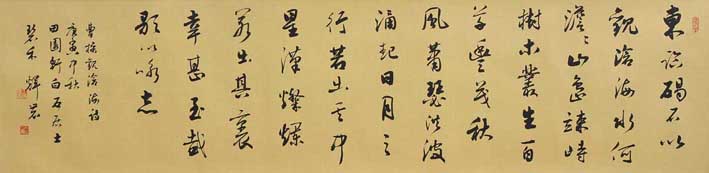 東臨碣石以
觀滄海水何
澹〻山島竦峙
樹木叢生百
草豐茂秋
風蕭瑟洪波
涌起日月之
行若出其中
星漢燦爛
若出其裏
幸甚至哉
歌以咏志
曹操觀滄海詩
庚寅中秋
田園軒白石居士